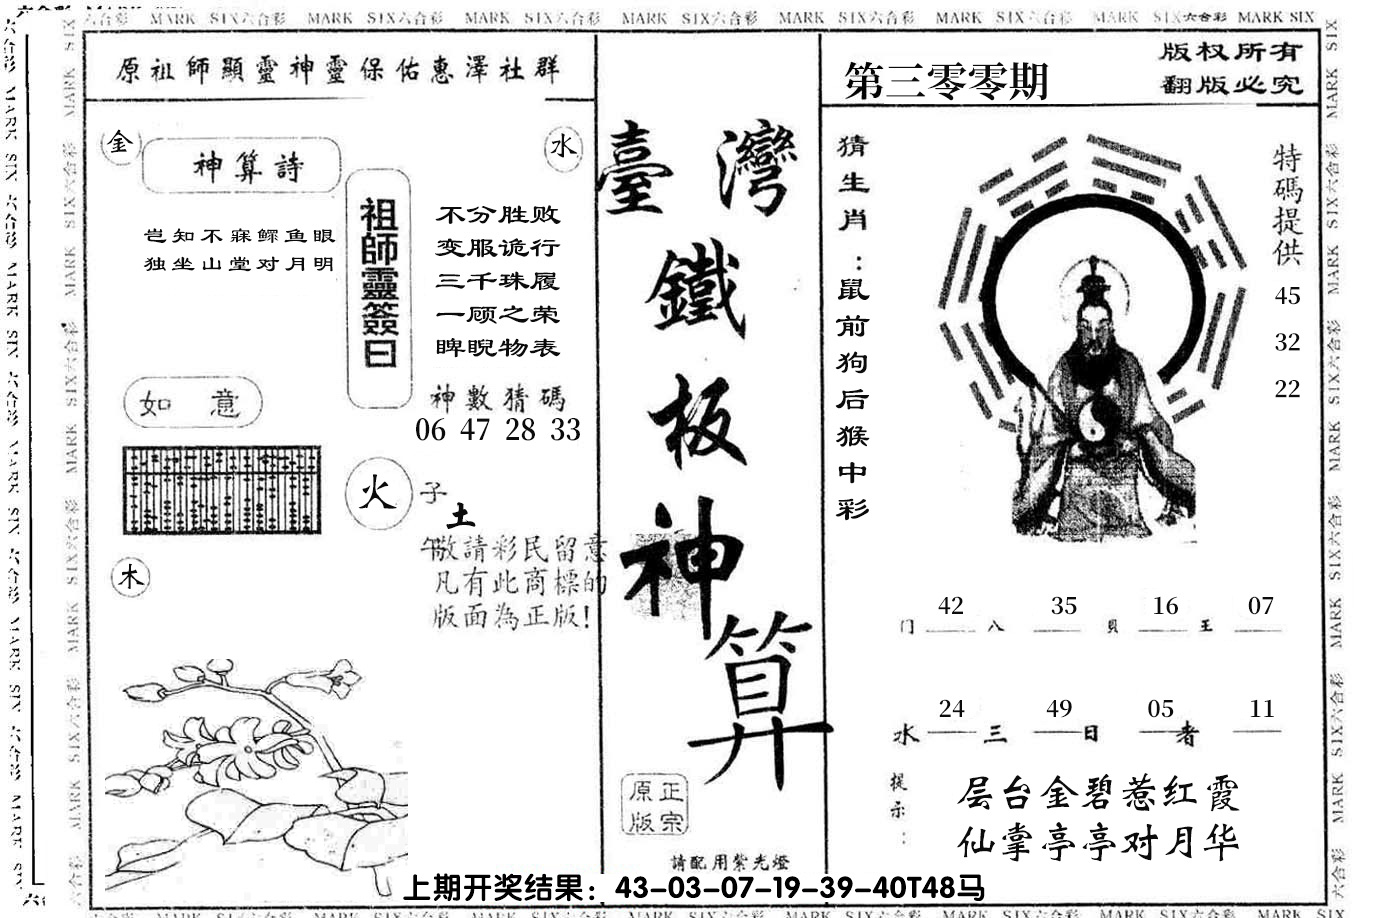 六合彩 MARK SIX六合彩 MARK SIX六合彩 MARK SIX六合彩 MARK SIX六合彩 MARK SIX六合彩 MARK SIX六合彩 MARK SIX六合彩 MARK SIX
原祖師顯靈神靈保佑惠澤社群
金
神算詩
水
岂知不寐鳏鱼眼
独坐山堂对月明
祖師靈簽曰
不分胜败
变服诡行
三千珠履
一顾之荣
睥睨物表
如 意
神數猜碼
06 47 28 33
火
子
土
午
敬請彩民留意
凡有此商標的
版面為正版!
木
臺灣
鐵
板
神
算
正宗
原版
請配用紫光燈
第三零零期
版权所有
翻版必究
猜生肖:鼠前狗后猴中彩
特碼提供
45
32
22
42 35 16 07
门 八 貝 王
24 49 05 11
水 三 日 者
提示:
层台金碧惹红霞
仙掌亭亭对月华
上期开奖结果:43-03-07-19-39-40T48马